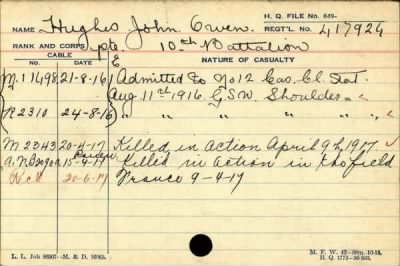 NAME Hughes John Owen. H. Q. FILE No. 649-
REGT'L. No. 417924
RANK AND CORPS pte. 10th Battalion
CABLE
No. DATE NATURE OF CASUALTY
E
M. 11498 21-8-16 Admitted to No 12 Cas. Cl. Stat.
Aug. 11th 1916. G.S.W. Shoulder
R 2310 24-8-16 " " " " "
M 2343 20-4-17 Killed in action April 9th, 1917
15-4-17 Killed in action in the field
20-6-17 France 9-4-17
L. L. Job 86907-M. & D. 10065. M. F. W. 42-50m.-10-16.
H. Q. 1772-39-893.